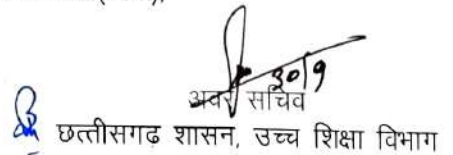 30/9
अवर सचिव
छत्तीसगढ शासन, उच्च शिक्षा विभाग